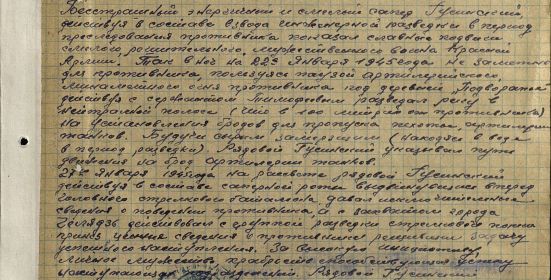 Бесстрашный энергичный и смелый сапер Гусинский
действуя в составе взвода инженерной разведки в период
преследования противника показал славные подвиги
смелого, решительного, мужественного воина Красной
Армии. Так в ночь на 22е января 1945 года не заметно
для противника, пользуясь паузой артиллерийского,
минометного огня противника под деревней "Подворатов"
действуя с сержантом Тимофеевым разведал реку в
нейтральной полосе (что в 100 метрах от противника)
на установления бродов для пропуска пехоты, артиллерии
танков. Будучи сырым замерзшим (находясь в воде
в период разведки) Рядовой Гусинский указывал пути
движения на брод артиллерии танков.
27е января 1945 года на рассвете рядовой Гусинский
действуя в составе саперной роты выдвинувшись вперед
головного стрелкового батальона давал исключительные
сведения о поведении противника, и с захватом города
действовал с группой разведки стрелкового полка
принес ценные сведения о противнике решившие задачу
успешного наступления. За смелость инициативу
личное мужество, храбрость способствующие успеху
наступающих подразделений. Рядовой Гусинский